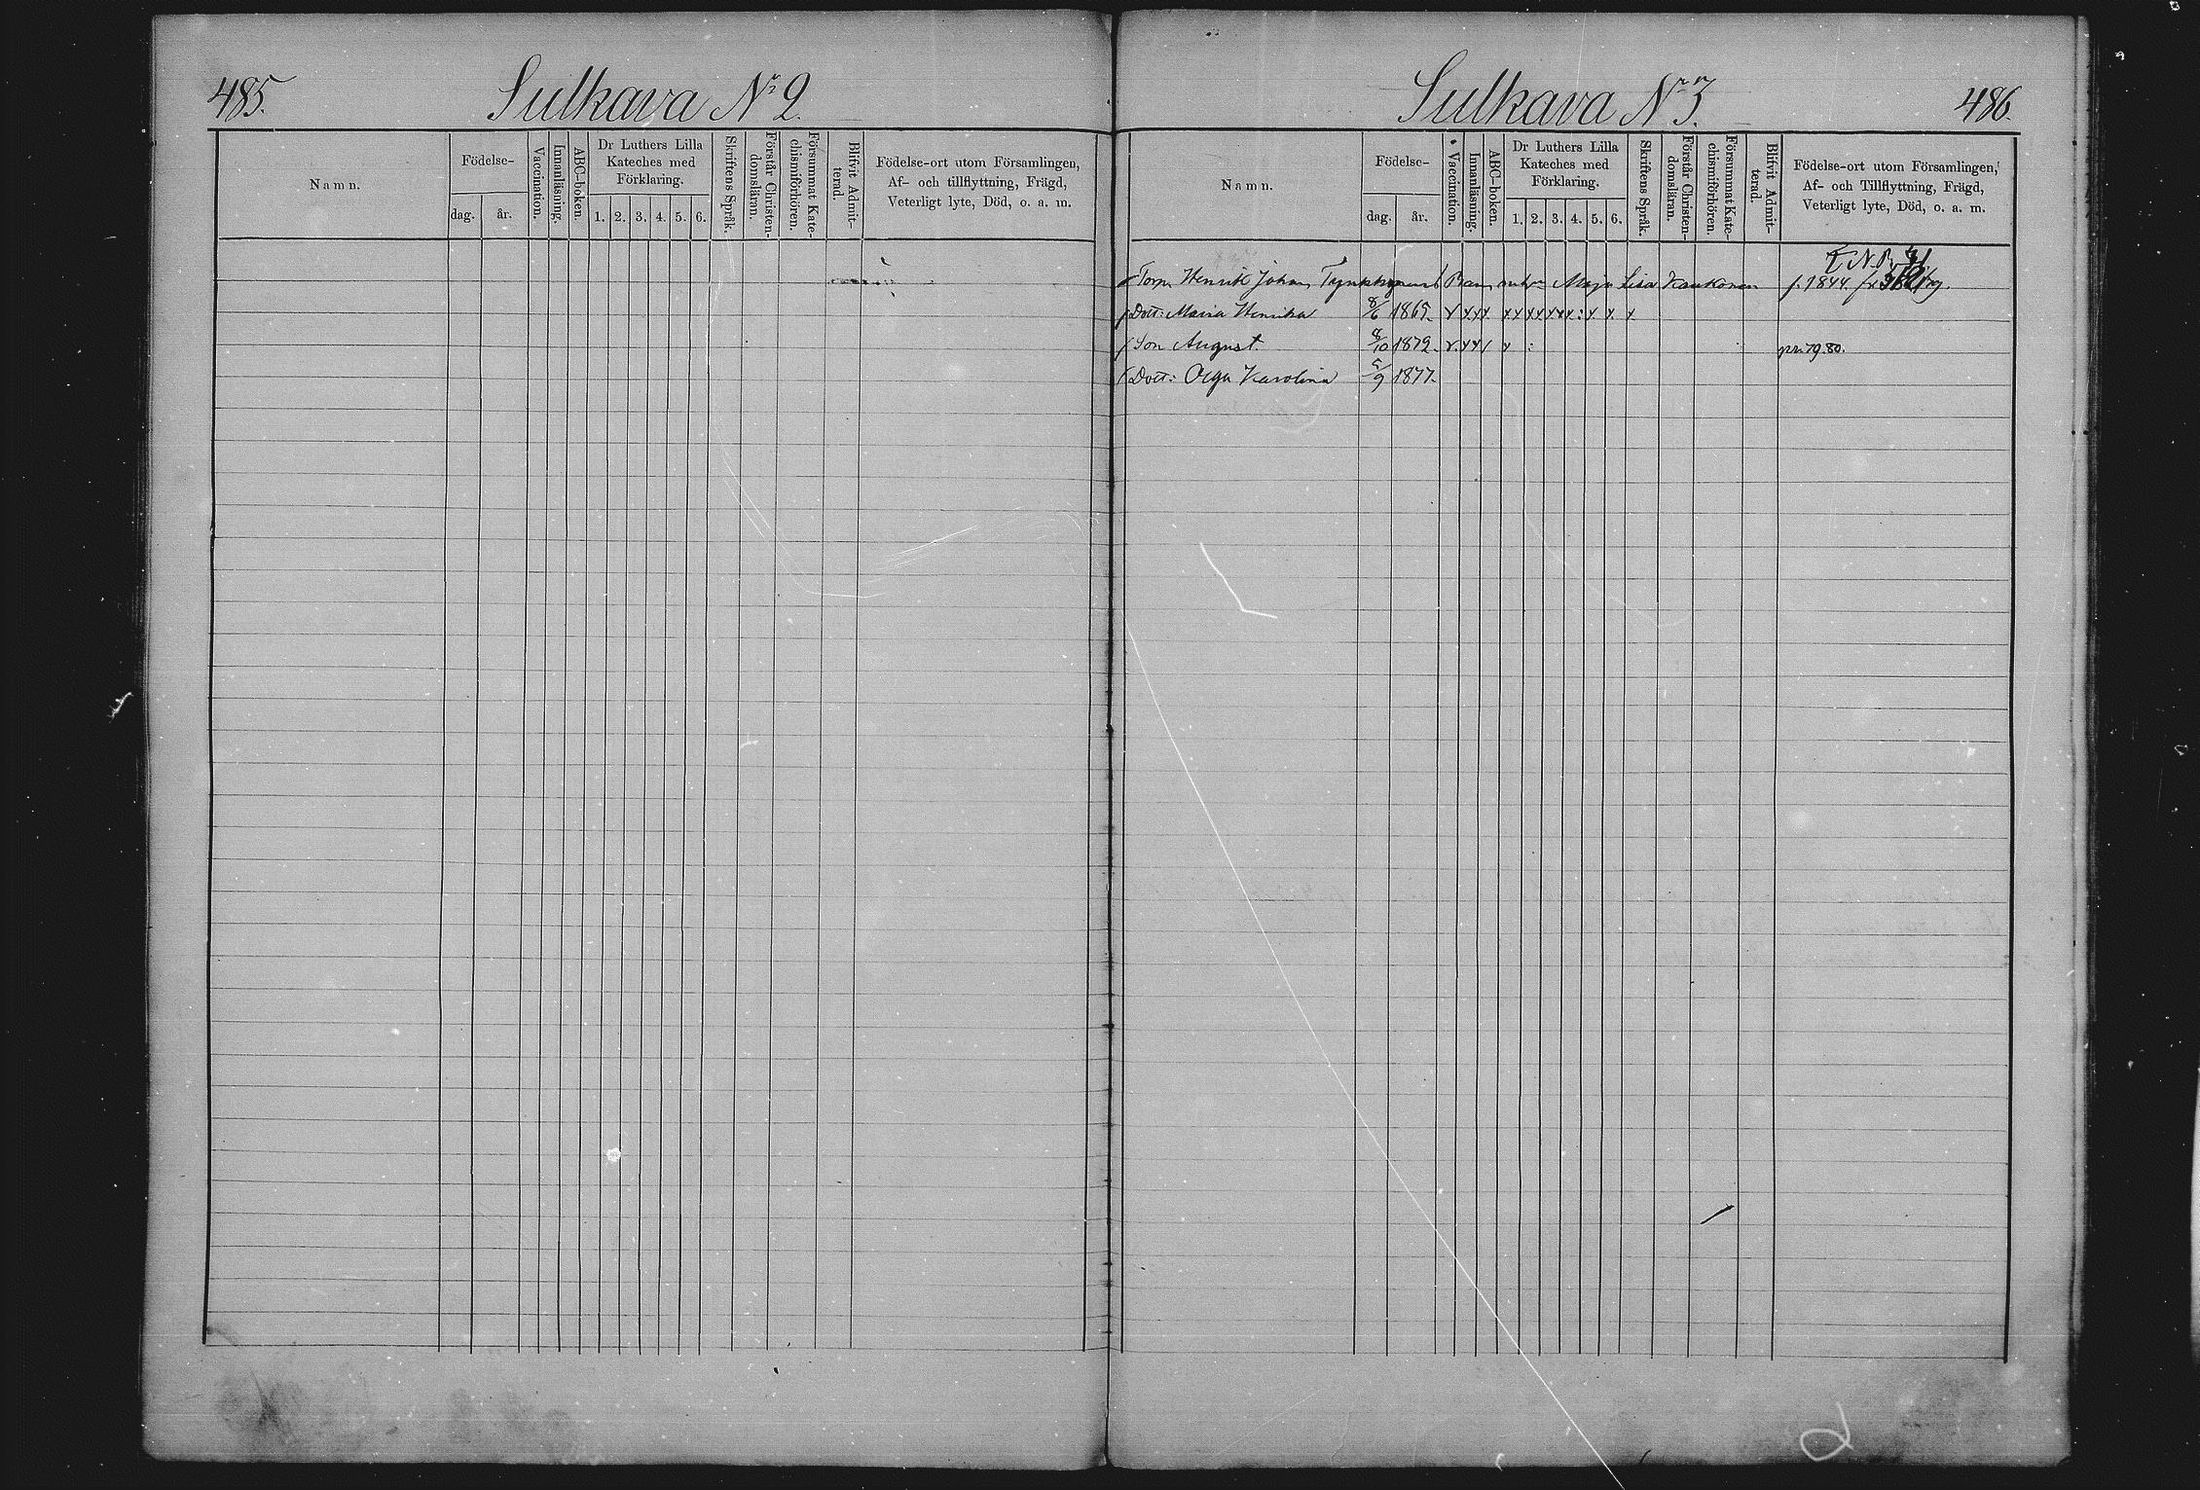 485. Sulkava Nr 2.
Namn.
Födelse-
dag. år.
Vaccination.
Innanläsning.
ABC-boken.
Dr Luthers Lilla
Kateches med
Förklaring.
1. 2. 3. 4. 5. 6.
Skriftens Språk.
Förstår Christen-
domsläran.
Försummat Kate-
chismiförhören.
Blifvit Admit-
terad.
Födelse-ort utom Församlingen,
Af- och tillflyttning, Frägd,
Veterligt lyte, Död, o. a. m.
Sulkava Nr 3. 486.
Namn.
Födelse-
dag. år.
Vaccination.
Innanläsning.
ABC-boken.
Dr Luthers Lilla
Kateches med
Förklaring.
1. 2. 3. 4. 5. 6.
Skriftens Språk.
Förstår Christen-
domsläran.
Försummat Kate-
chismiförhören.
Blifvit Admit-
terad.
Födelse-ort utom Församlingen,
Af- och Tillflyttning, Frägd,
Veterligt lyte, Död, o. a. m.
Torp. Henrik Johan Barn Maja Lisa Kaukonen f. 1844.
Dott: Maria Henrika 8/6 1865. v x x x x x x x x x x : x x x
Son August. 8/10 1872. v. x x / x : pr. 79. 80.
Dott: Olga Karolina 5/9 1877.